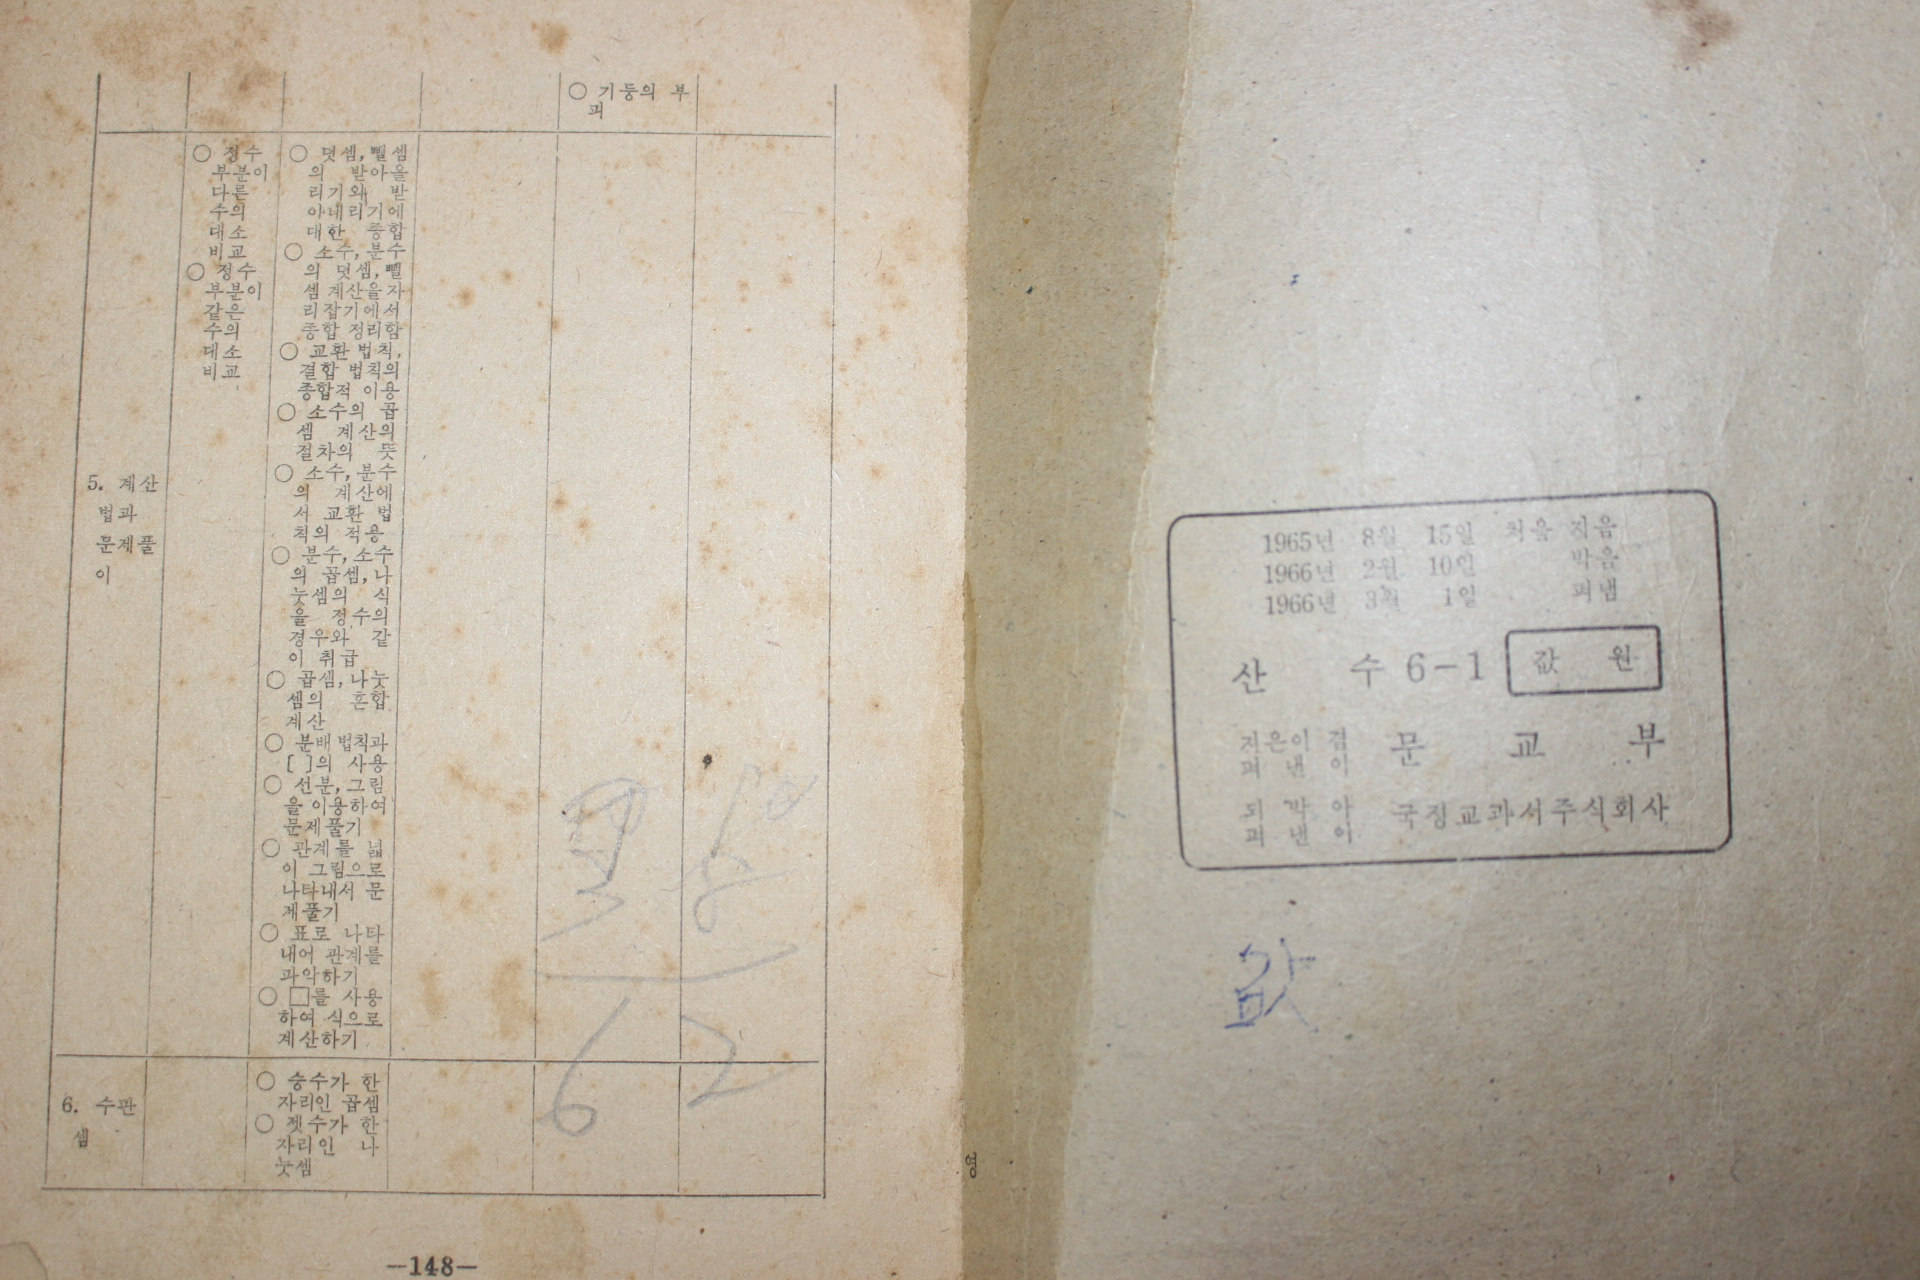 ○ 기둥의 부
피
5. 계산
법과
문제풀
이
○ 정수
부분이
다른
수의
대소
비교
○ 정수
부분이
같은
수의
대소
비교
○ 덧셈, 뺄셈
의 받아올
리기와 받
아내리기에
대한 종합
○ 소수, 분수
의 덧셈, 뺄
셈 계산을 자
리잡기에서
종합 정리함
○ 교환 법칙,
결합 법칙의
종합적 이용
○ 소수의 곱
셈 계산의
절차의 뜻
○ 소수, 분수
의 계산에
서 교환 법
칙의 적용
○ 분수, 소수
의 곱셈, 나
눗셈의 식
을 정수의
경우와 같
이 취급
○ 곱셈, 나눗
셈의 혼합
계산
○ 분배 법칙과
[ ]의 사용
○ 선분, 그림
을 이용하여
문제풀기
○ 관계를 넓
이 그림으로
나타내서 문
제풀기
○ 표로 나타
내어 관계를
파악하기
○ □를 사용
하여 식으로
계산하기
6. 수판
셈
○ 승수가 한
자리인 곱셈
○ 젯수가 한
자리인 나
눗셈
62
—148—
영
1965년 8월 15일 처음 지음
1966년 2월 10일 박음
1966년 3월 1일 펴냄
산 수 6-1 값 원
지은이 겸
펴 낸 이 문 교 부
되 박 아
펴 낸 이 국정교과서주식회사
값